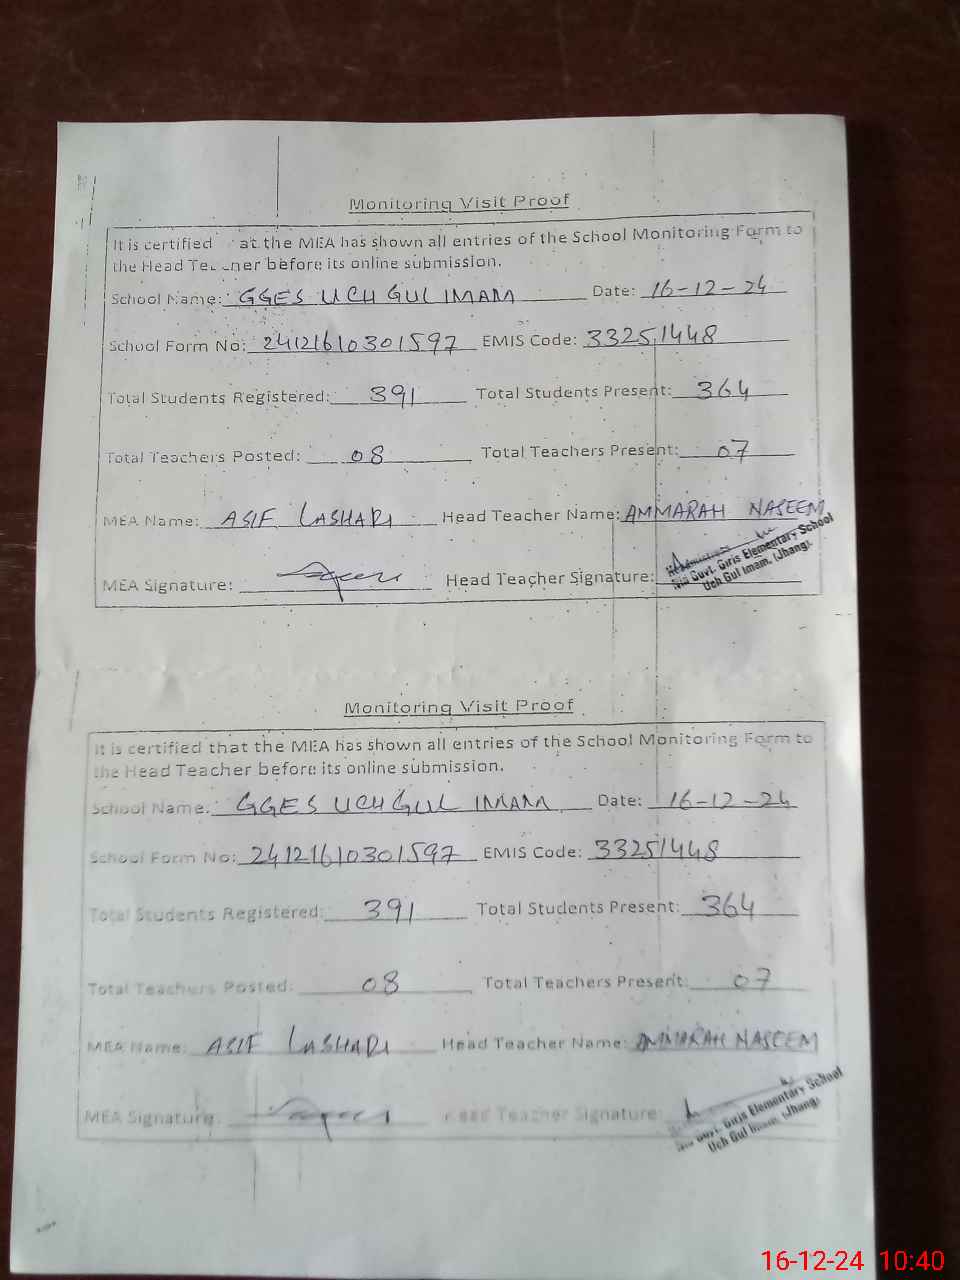 Monitoring Visit Proof
It is certified at the MEA has shown all entries of the School Monitoring Form to
the Head Teacher before its online submission.
School Name: GGES UCH GUL IMAM Date: 16-12-24
School Form No: 24121610301597 EMIS Code: 33251448
Total Students Registered: 391 Total Students Present: 364
Total Teachers Posted: 08 Total Teachers Present: 07
MEA Name: ASIF LASHARI Head Teacher Name: AMMARAH NASEEM
MEA Signature: Head Teacher Signature:
Headmistress
Govt. Girls Elementary School
Uch Gul Imam, (Jhang).
Monitoring Visit Proof
It is certified that the MEA has shown all entries of the School Monitoring Form to
the Head Teacher before its online submission.
School Name: GGES UCH GUL IMAM Date: 16-12-24
School Form No: 24121610301597 EMIS Code: 33251448
Total Students Registered: 391 Total Students Present: 364
Total Teachers Posted: 08 Total Teachers Present: 07
MEA Name: ASIF LASHARI Head Teacher Name: AMMARAH NASEEM
MEA Signature: Head Teacher Signature:
Govt. Girls Elementary School
Uch Gul Imam, (Jhang)
16-12-24 10:40